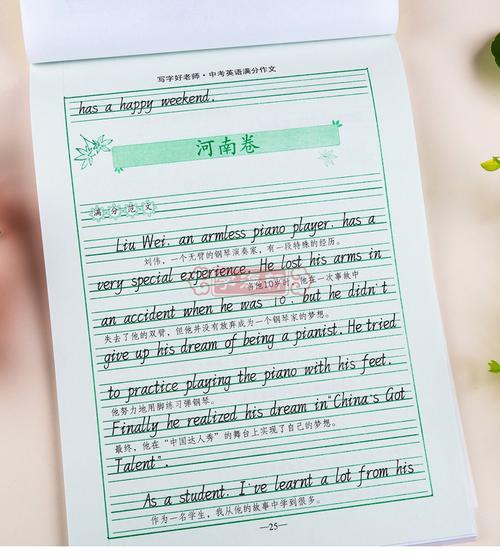 写字好老师·中考英语满分作文
has a happy weekend.
河南卷
满分范文
Liu Wei, an armless piano player, has a
刘伟,一个无臂的钢琴演奏家,有一段特殊的经历。
very special experience. He lost his arms in
当他10岁时,他在一次事故中
an accident when he was 10, but he didn't
失去了他的双臂,但他并没有放弃成为一个钢琴家的梦想。
give up his dream of being a pianist. He tried
to practice playing the piano with his feet.
他努力地用脚练习弹钢琴。
Finally he realized his dream in "China's Got
最终,他在“中国达人秀”的舞台上实现了自己的梦想。
Talent".
As a student, I've learnt a lot from his
作为一名学生,我从他的故事中学到很多。
—25—